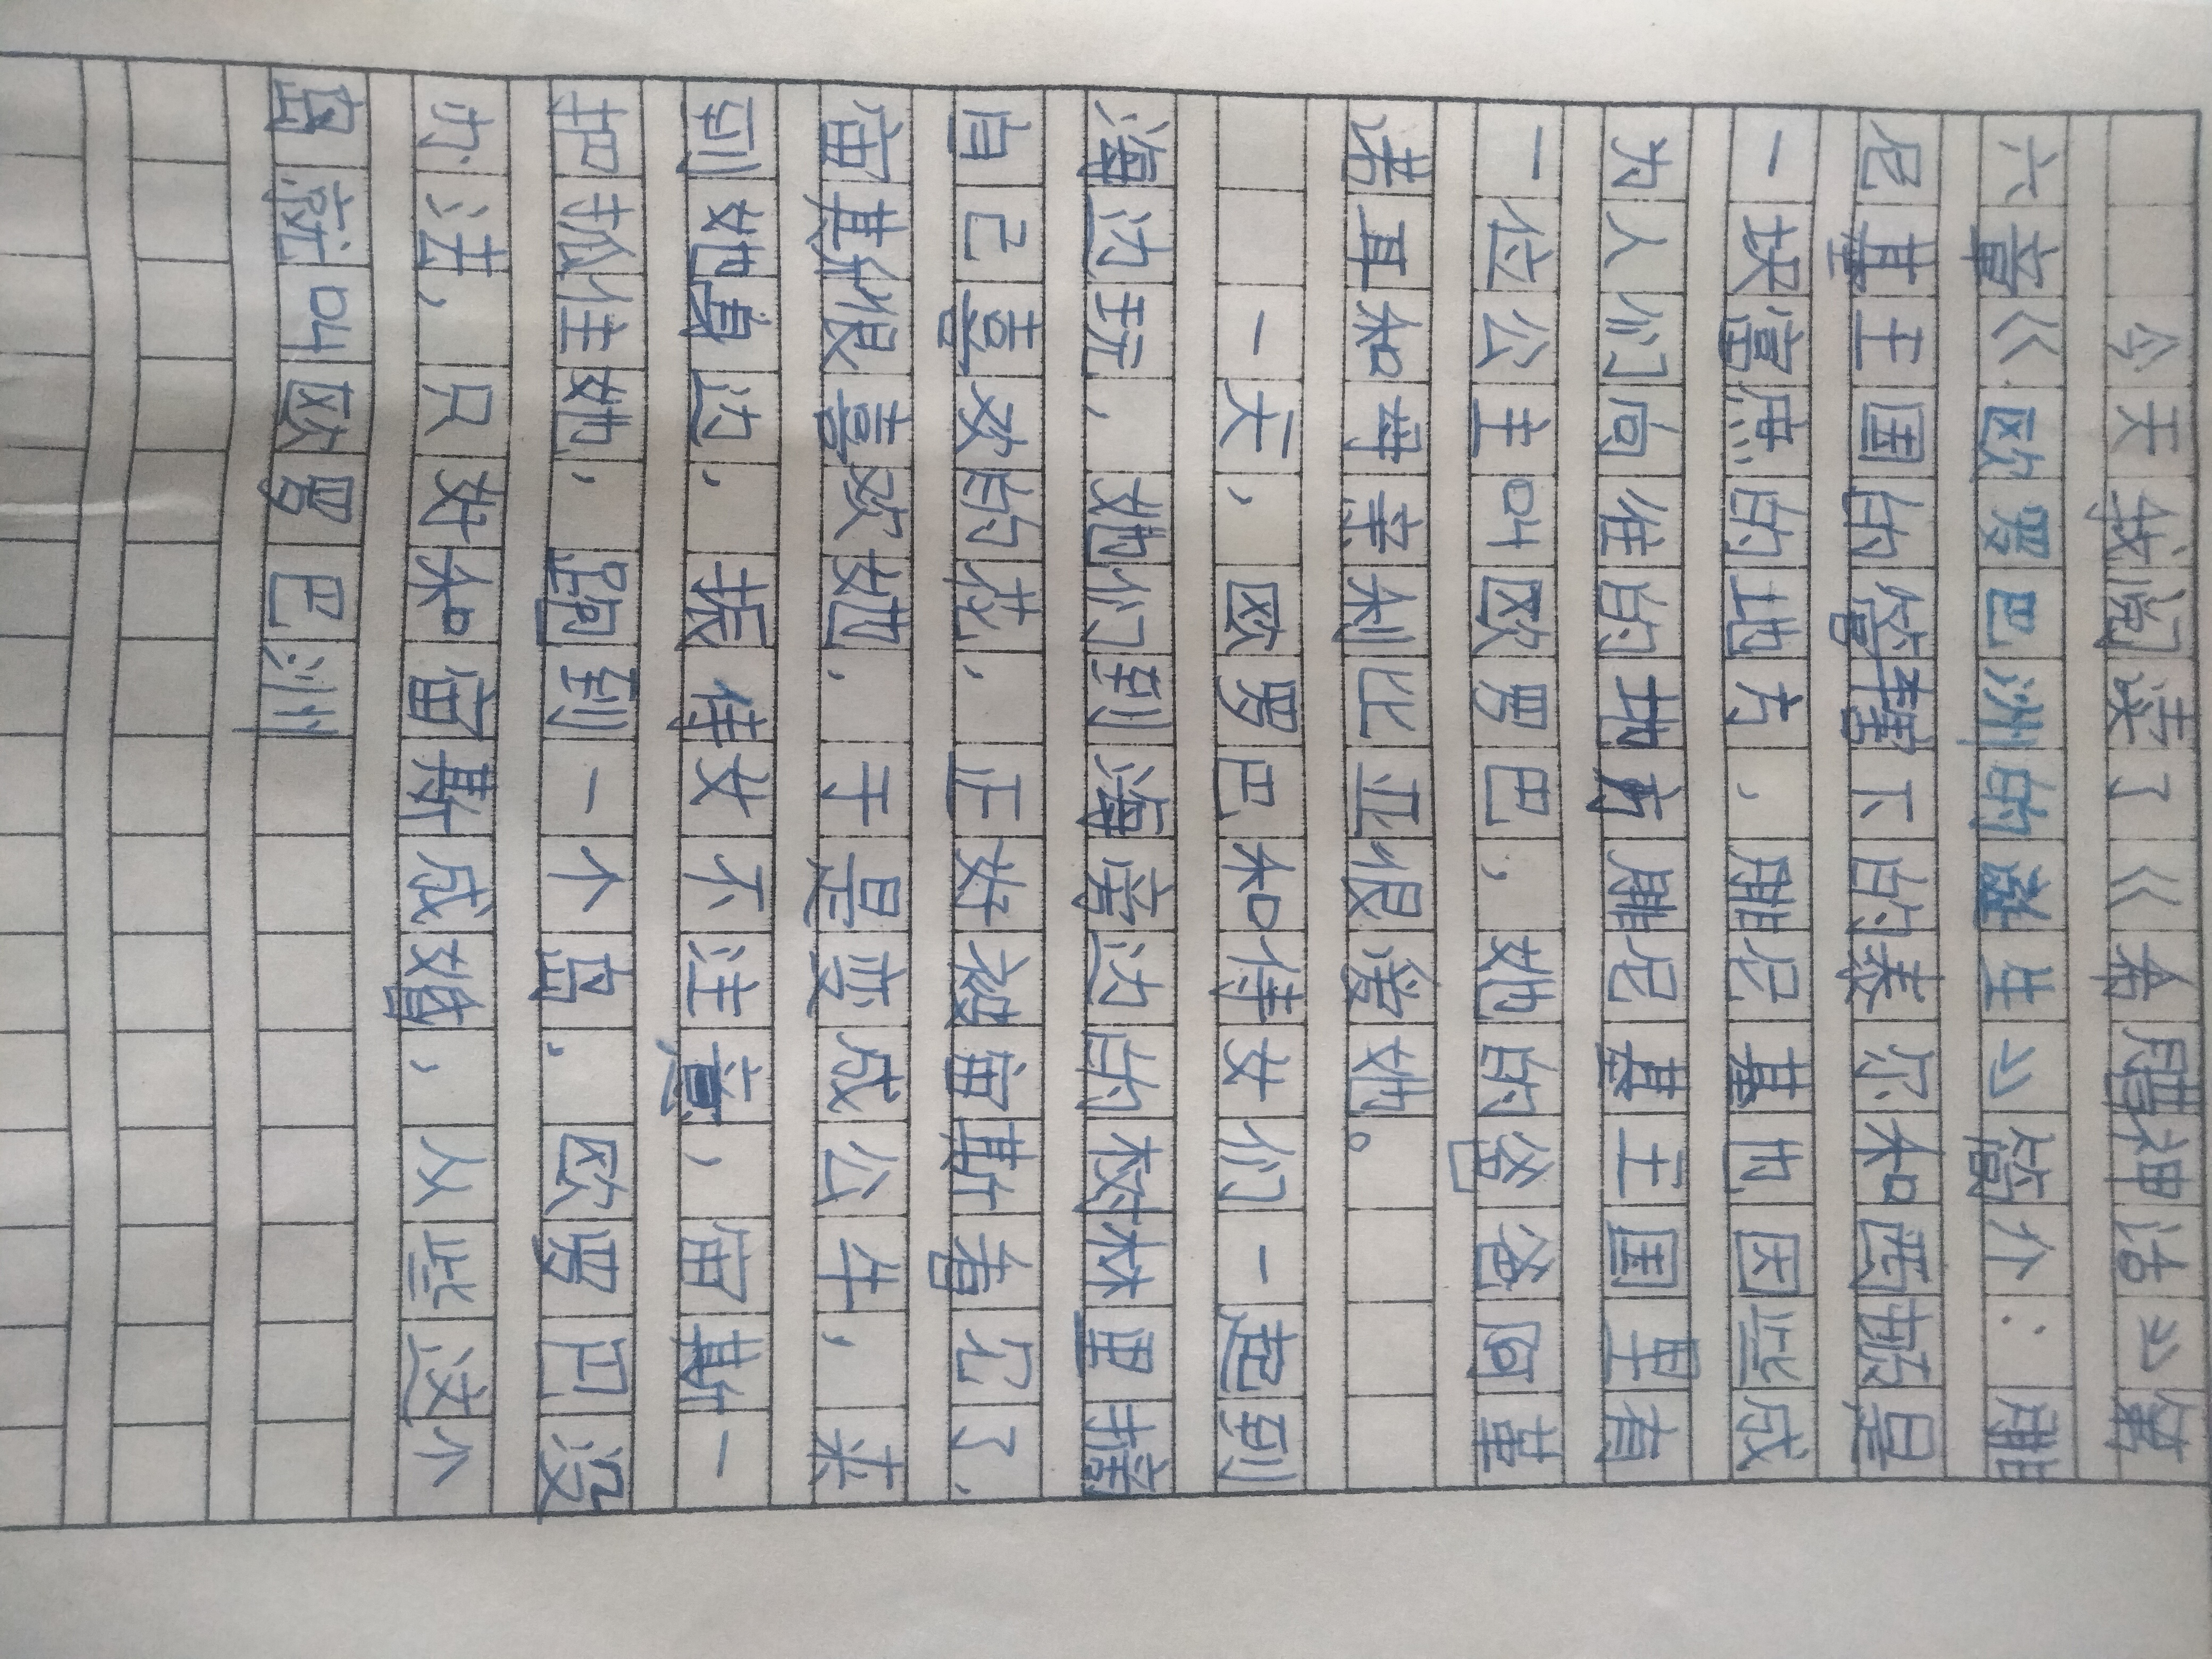 今天我阅读了《希腊神话》第
六章《欧罗巴洲的诞生》简介：腓
尼基王国的管辖下的泰尔和西顿是
一块富庶的地方，腓尼基也因此成
为人们向往的地方腓尼基王国里有
一位公主叫欧罗巴，她的爸爸阿革
诺耳和母亲利比亚很爱她。
一天，欧罗巴和侍女们一起到
海边玩，她们到海旁边的树林里摘
自己喜欢的花，正好被宙斯看见了，
宙斯很喜欢她，于是变成公牛，来
到她身边，振侍女不注意，宙斯一
把抓住她，跑到一个岛，欧罗巴没
办法，只好和宙斯成婚，从此这个
岛就叫欧罗巴洲